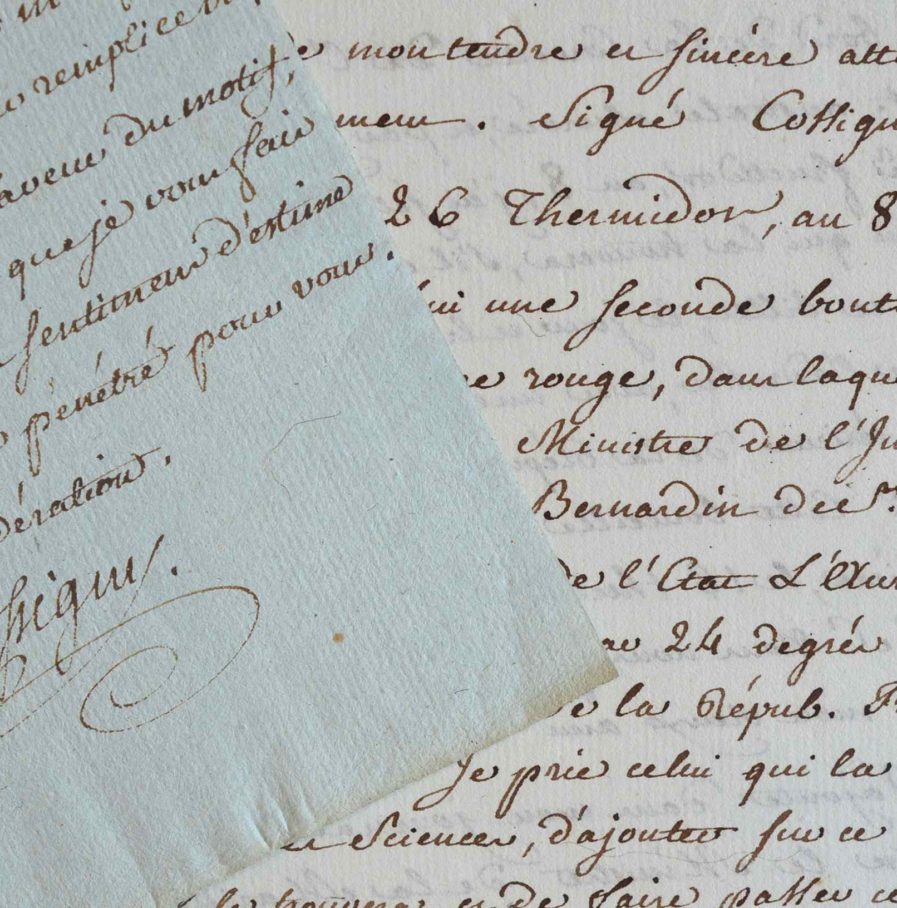 remplice
aveu du motif,
que je vous fais
sentimens d'estime
pénétré pour vous.
dération.
e mon tendre et sincére atta
ment. Signé Cossign
26 Thermidor, au 8
ui une seconde boute
ce rouge, dans laque
Ministre de l'In
Bernardin de S.t
de l'Etat L'Exa
au 24 degrés
de la Répub. F
Je prie celui qui la
et Sciences, d'ajouter sur ce
la trouvera et de faire passer ce